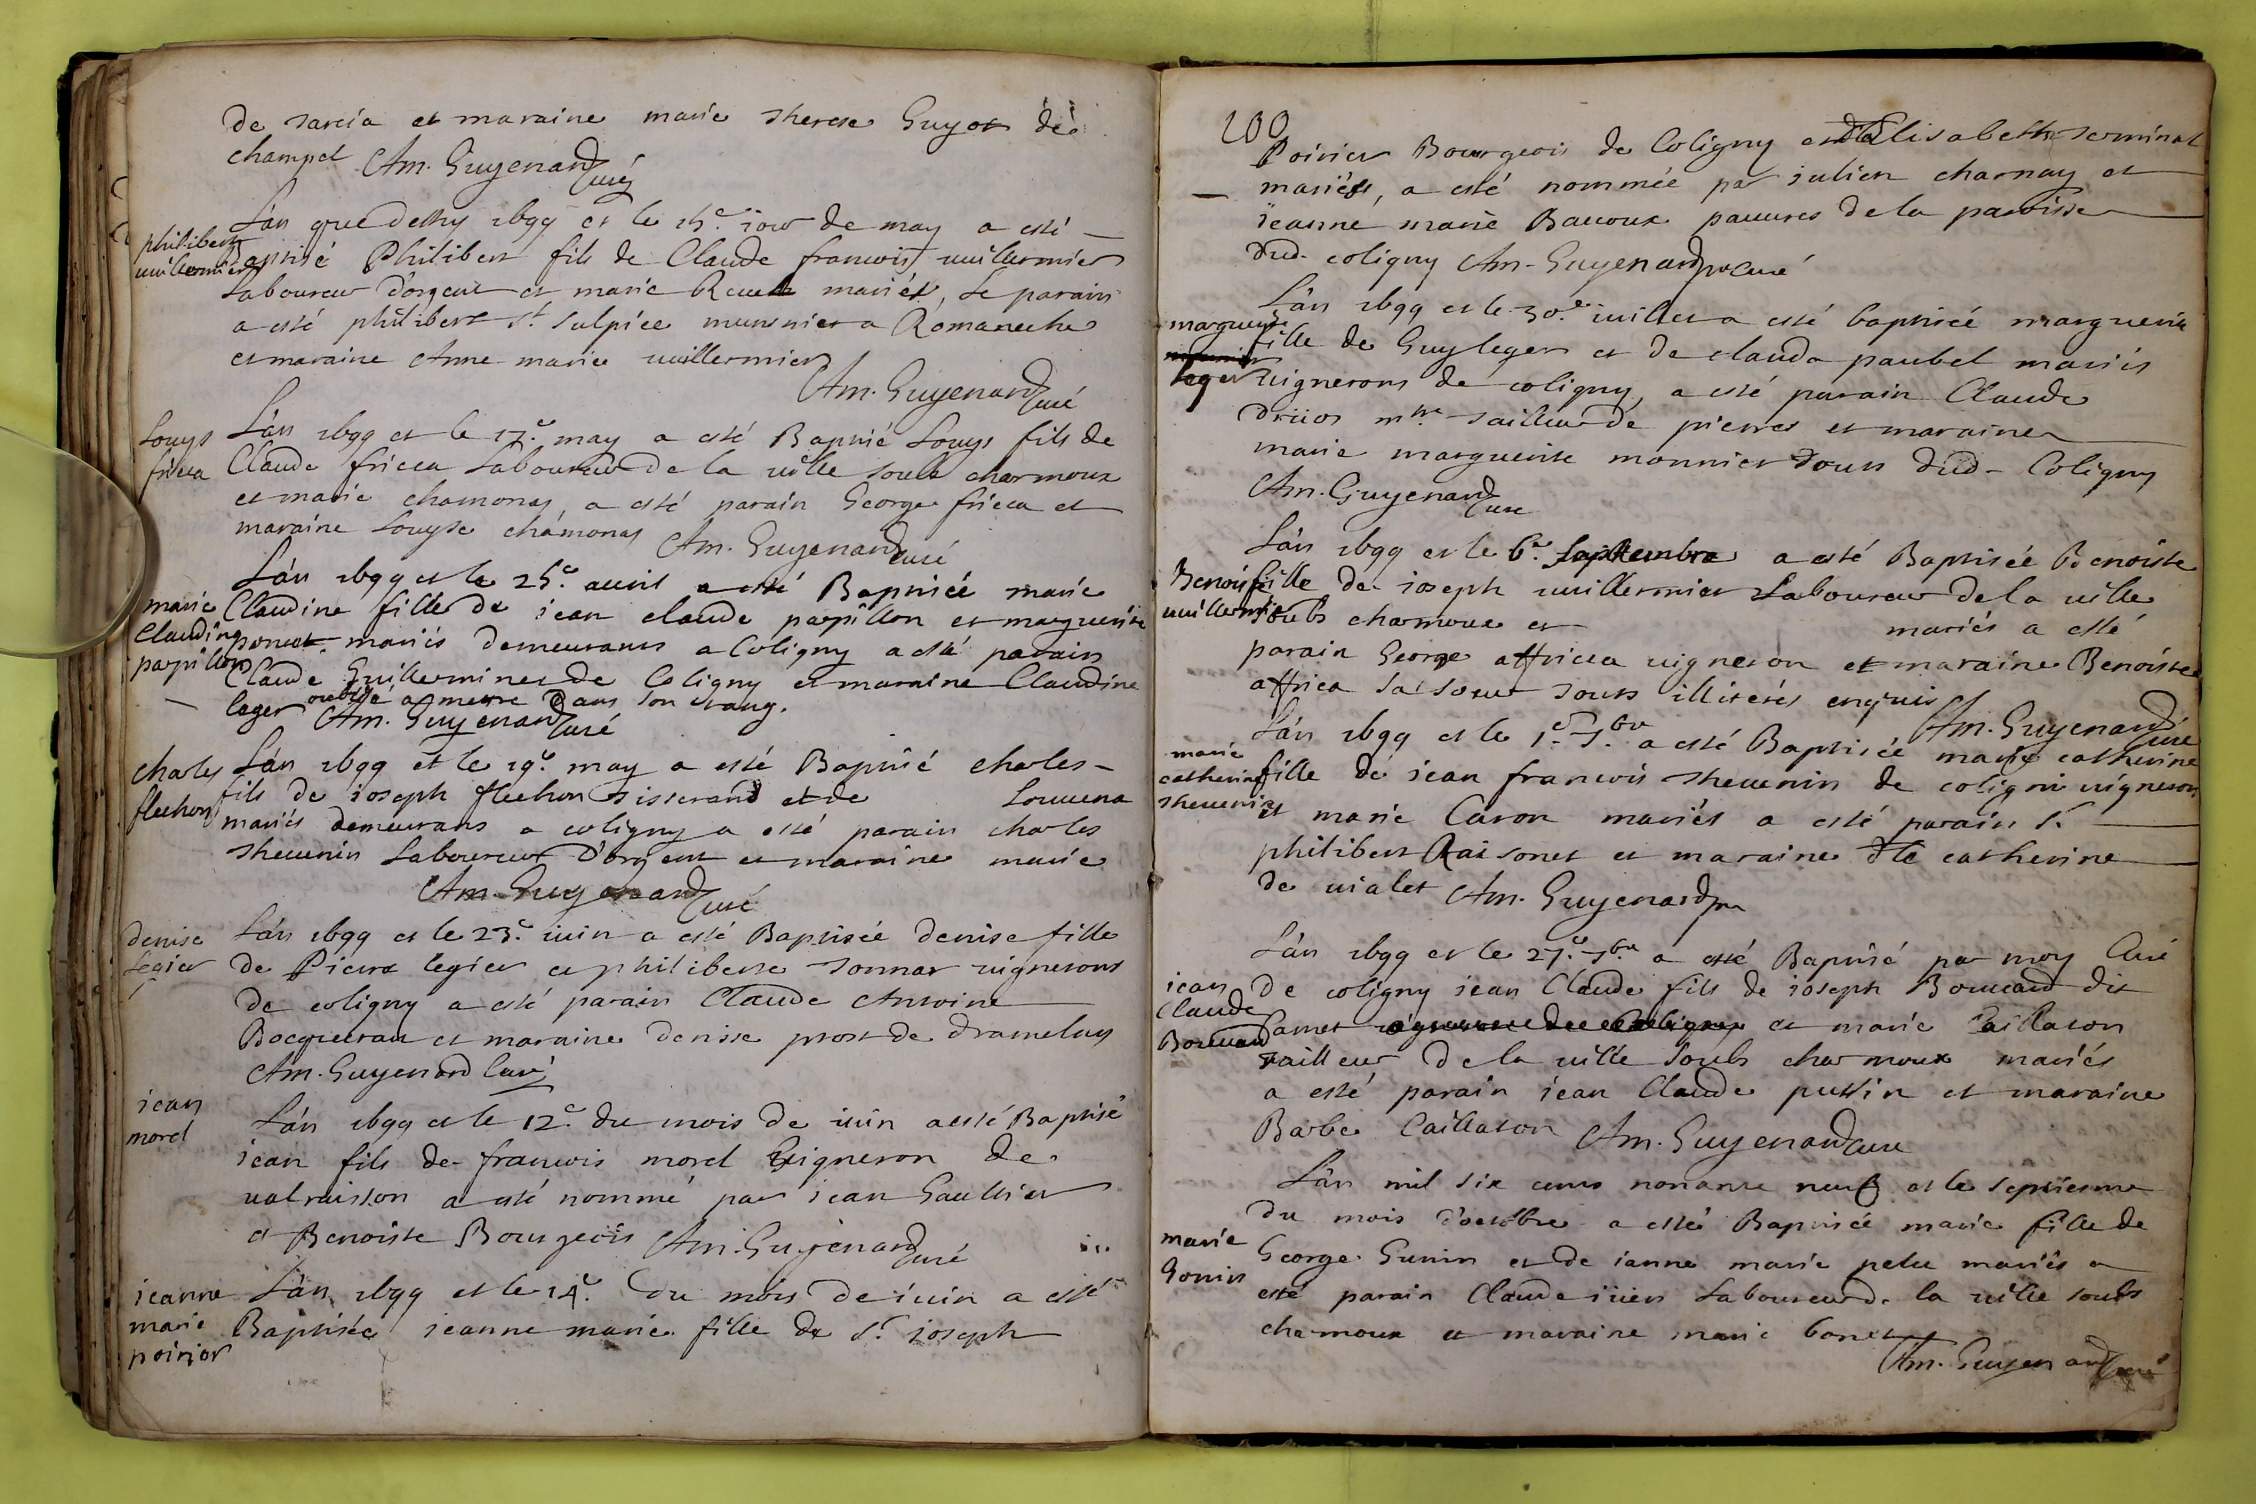 de sarcia et maraine marie therese Guyot de
champel Am. Guyenard curé
philibert
vuillermier
L'an que dessus 1699 et le 15e. iour de may a esté
Baptisé Philibert fils de Claude francois vuillermier
Laboureur d'orgent et marie mariés, le parain
a esté philibert st. sulpice musnier a Romaneche
et maraine Anne marie vuillermier
Am. Guyenard curé
Louys
fricca
L'an 1699 et le 17e. may a esté Baptisé Louys fils de
Claude fricca Laboureur de la ville soubs charmoux
et marie chamonay, a esté parain George fricca et
maraine Louyse chamonay Am. Guyenard curé
marie
Claudine
papillon
L'an 1699 et le 25e. avril a esté Baptisée marie
Claudine fille de iean claude papillon et marguerite
poncet mariés demeurants a Coligny a esté parain
Claude Guillerminet de Coligny et maraine Claudine
leger oublié a mettre dans son rang.
Am. Guyenard curé
charles
flechon
L'an 1699 et le 19e. may a esté Baptisé charles
fils de ioseph flechon tisserand et de Louvena
mariés demeurans a coligny a esté parain charles
thevenin Laboureur d'orgent et maraine marie
Am. Guyenard curé
denise
legier
L'an 1699 et le 23e. iuin a esté Baptisée denise fille
de Pierre legier et philiberte tonnar vignerons
de coligny a esté parain Claude Antoine
Bocquerau et maraine denise prost de dramelay
Am. Guyenard Curé
iean
morel
L'an 1699 et le 12e. du mois de iuin a esté Baptisé
iean fils de francois morel vigneron de
valruisson a esté nommé par iean Gaultier
et Benoiste Bourgeois Am. Guyenard curé
ieanne
marie
poirier
L'an 1699 et le 14e. du mois de iuin a esté
Baptisée ieanne marie fille de Sr. ioseph
200
Poirier Bourgeois de Coligny et dlle Elisabeth terminal
mariés, a esté nommée par iulien charnay et
ieanne marie Bavoux pauures de la paroisse
dud. coligny Am. Guyenard pr curé
marguerite
leger
L'an 1699 et le 30e. iuillet a esté baptisée marguerite
fille de Guy leger et de clauda paubel mariés
vignerons de coligny, a esté parain Claude
driios mtre tailleur de pierres et maraine
marie marguerite monnier tous dud. Coligny
Am. Guyenard cure
Benoiste
vuillermier
L'an 1699 et le 6e. septembre a esté Baptisée Benoiste
fille de ioseph vuillermier Laboureur de la ville
soubs charmoux et mariés a esté
parain George affricca vigneron et maraine Benoiste
affrica sa soeur touts illiterés enquis Am. Guyenard cure
marie
catherine
thevenin
L'an 1699 et le 1er. 7bre a esté Baptisée marie catherine
fille de iean francois thevenin de coligni vigneron
et marie Caron mariés a esté parain Sr.
philibert Raisonet et maraine dlle catherine
de vialet Am. Guyenard
iean
Claude
Bouvard
L'an 1699 et le 27e. 7bre a esté Baptisé par moy Curé
de coligny iean Claude fils de ioseph Bouvard dit
et marie Caillaton
tailleur de la ville soubs charmoux mariés
a esté parain iean Claude puttin et maraine
Barbe Caillaton Am. Guyenard cure
marie
Gonin
L'an mil six cents nonante neuf et le septiesme
du mois d'octobre a esté Baptisée marie fille de
George Gunin et de ianne marie pelu mariés a
esté parain Claude iiien Laboureur de la ville soubs
charmoux et maraine marie bonet
Am. Guyenard curé